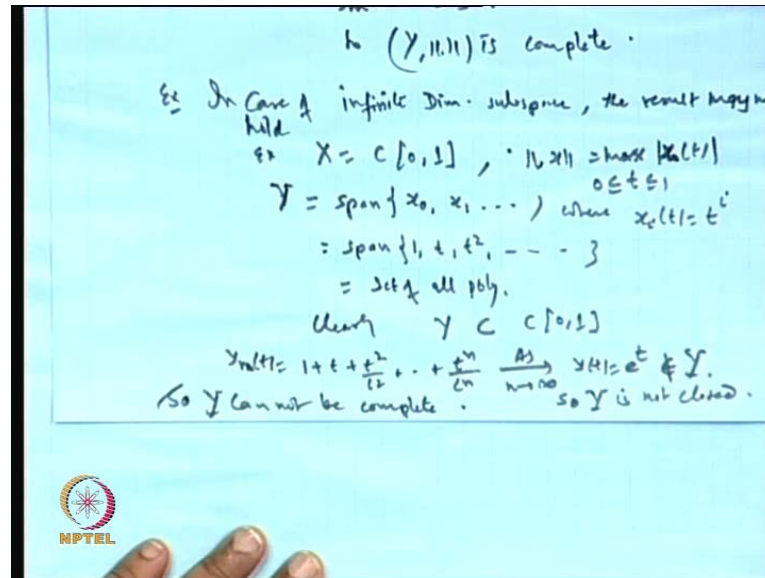 so (Y, ||.||) is complete.
Ex In Case of infinite Dim. subspace, the result may n
hold
Ex X = C[0,1], ||x|| = max |x(t)|
0 ≤ t ≤ 1
Y = span{x₀, x₁ ...) where xᵢ(t) = tⁱ
= span{1, t, t², - - - }
= set of all poly.
Clearly Y ⊂ C[0,1]
yₙ(t) = 1 + t + t²/⌊2 + .. + tⁿ/⌊n As n→∞ → y(t) = eᵗ ∉ Y.
So Y can not be complete. So Y is not closed.
NPTEL